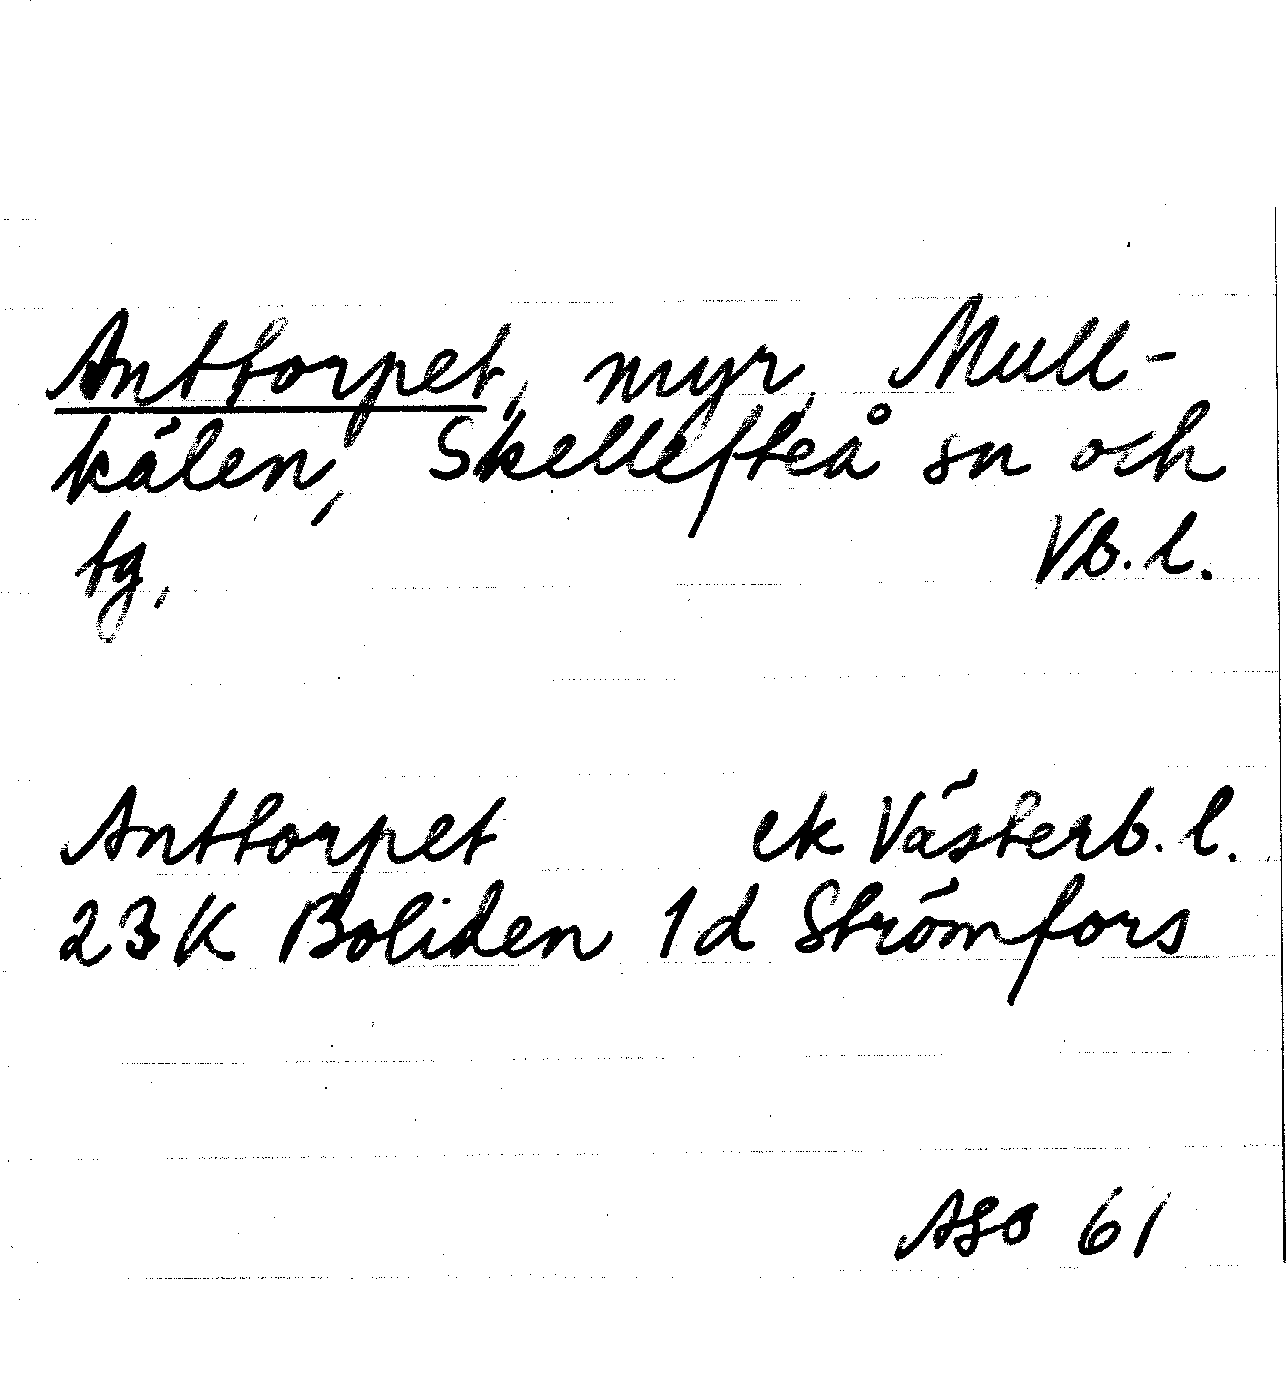 Anttorpet, myr, Mull-
kälen, Skellefteå sn och
tg, Vb. l.
Anttorpet ek Västerb. l.
23 K Boliden 1 d Strömfors
ASO 61